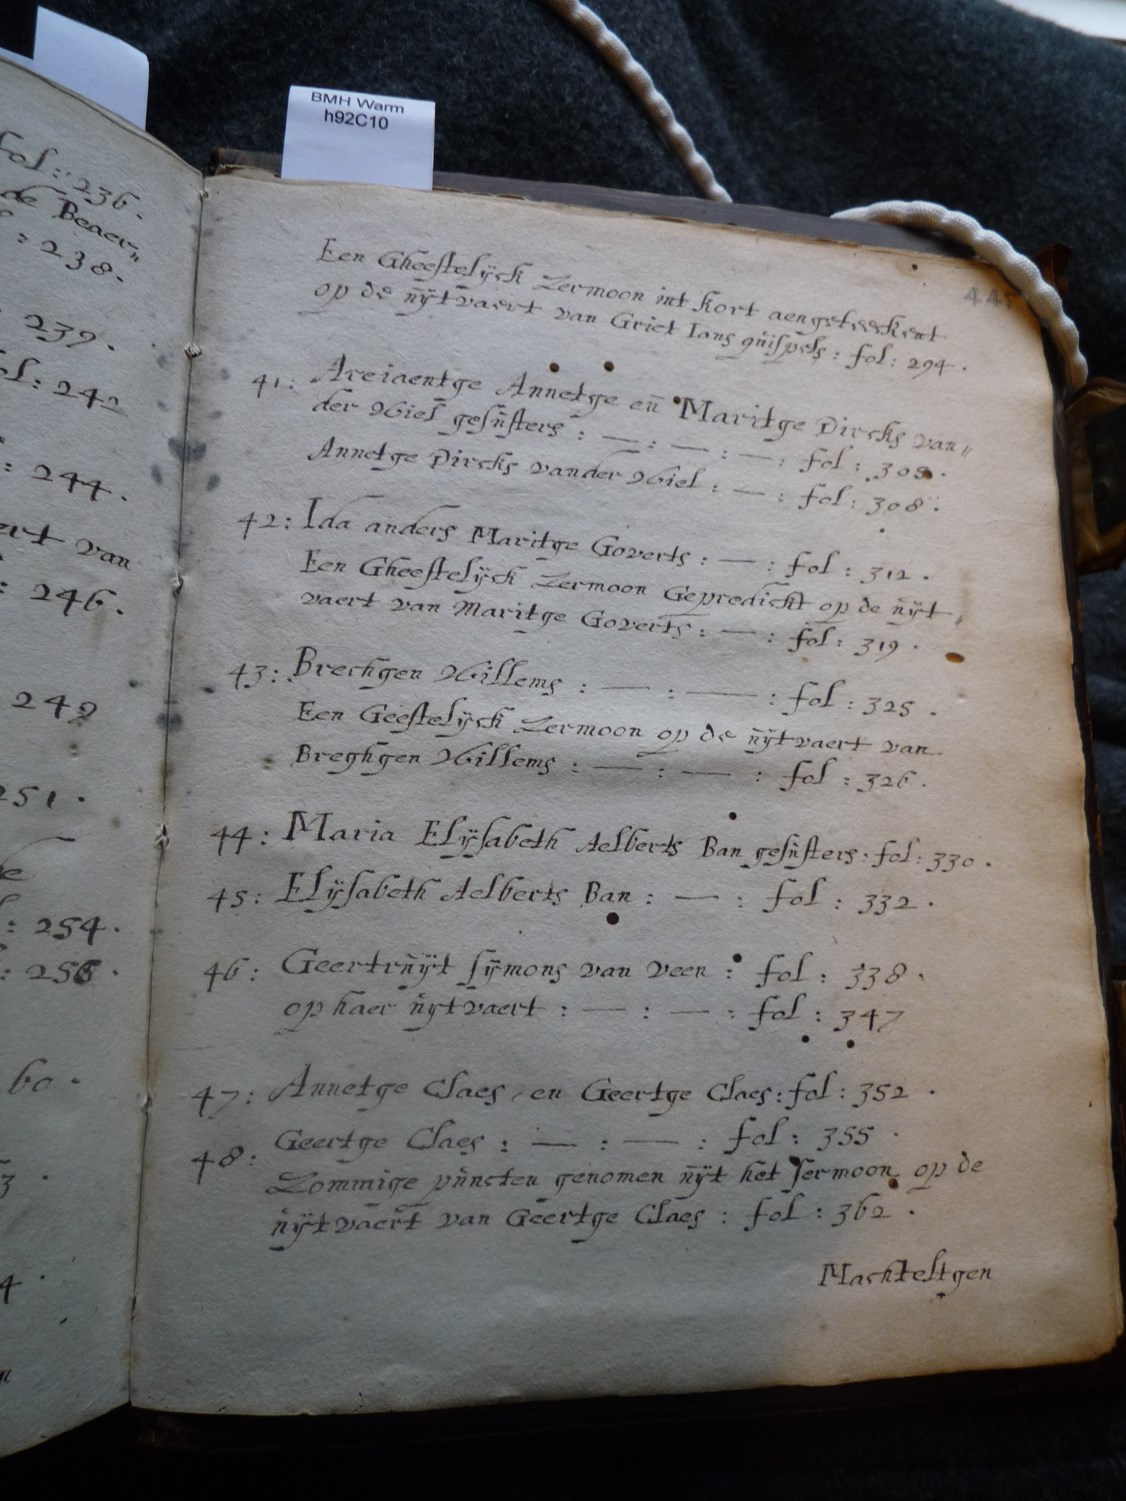 BMH Warm
h92C10
fol : 236 .
de Beaer„
: 238 .
239 .
: 242
: 244 .
van
: 246 .
249
251 .
: 254 .
: 256 .
60 .
445
Een Gheestelÿck Zermoon int kort aengeteeckent
op de uÿtvaert van Griet Ians quispels : fol : 294 .
41 : Areiaentge Annetge eñ Maritge Dircks van„
der Wiel gesusters : — : — : — : fol : 303 .
Annetge Dircks vander Wiel : — : fol : 308 .
42 : Ida anders Maritge Goverts : — : fol : 312 .
Een Gheestelÿck Zermoon Gepredickt op de uÿt„
vaert van Maritge Goverts : — : fol : 319 .
43 : Brechgen Willems : — : — : fol : 325 .
Een Geestelÿck Zermoon op de uÿtvaert van
Breghgen Willems : — : — : fol : 326 .
44 : Maria Elÿsabeth Aelberts Ban gesusters : fol : 330 .
45 : Elÿsabeth Aelberts Ban : — : fol : 332 .
46 : Geertruÿt sÿmons van veen : fol : 338 .
op haer uÿtvaert : — : — : fol : 347
47 : Annetge Claes , en Geertge Claes : fol : 352 .
48 : Geertge Claes : — : — : fol : 355 .
Zommige puncten genomen uÿt het sermoon op de
uÿtvaert van Geertge Claes : fol : 362 .
Machteltgen